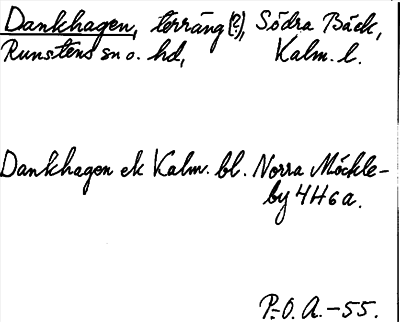 Dankhagen, terräng (?), Södra Bäck,
Runstens sn o. hd, Kalm. l.
Dankhagen ek Kalm. bl. Norra Möckle-
by 4H6a.
P.-O. A. -55.